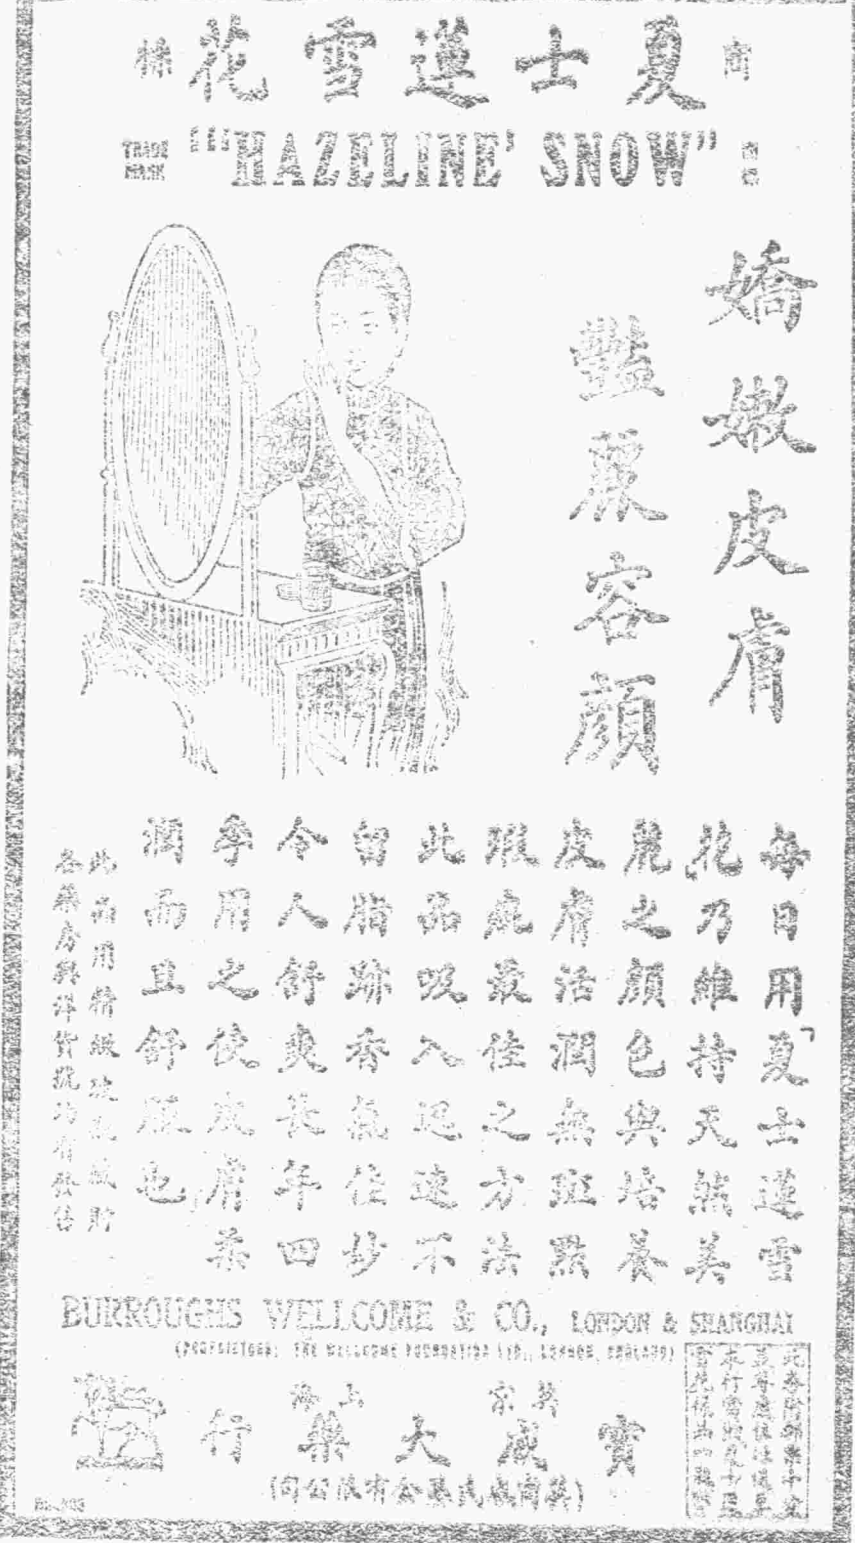 商標 夏士蓮雪花
TRADE MARK "'HAZELINE' SNOW"
嬌嫩皮膚
豔麗容顏
每日用「夏士蓮雪
花」乃維持天然美
麗之顏色與培養
皮膚活潤無斑點
瑕疵最佳之方法
此品吸入迅速不
留脂跡香氣佳妙
令人舒爽長年四
季用之使皮膚柔
潤而且舒服也
此雪用精緻玻瓶盛貯
各藥房與洋貨號均有發售
BURROUGHS WELLCOME & CO., LONDON & SHANGHAI
(PROPRIETORS: THE WELLCOME FOUNDATION LTD., LONDON, ENGLAND)
英京 上海
寶威大藥行